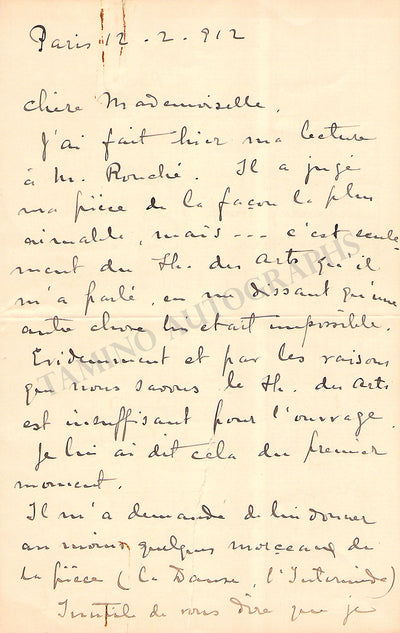 Paris 12 - 2 - 912
chère Mademoiselle,
J'ai fait hier ma lecture
à M. Rouché. Il a jugé
ma pièce de la façon la plus
aimable, mais --- c'est seule-
ment du Th. des Arts qu'il
m'a parlé, en me disant qu'une
autre chose lui était impossible.
Evidemment et par les raisons
que nous savons le Th. des Arts
est insuffisant pour l'ouvrage.
Je lui ai dit cela du premier
moment.
Il m'a demandé de lui donner
au moins quelques morceaux de
la pièce (la Danse, l'Intermède)
Inutile de vous dire que je
TAMINO AUTOGRAPHS